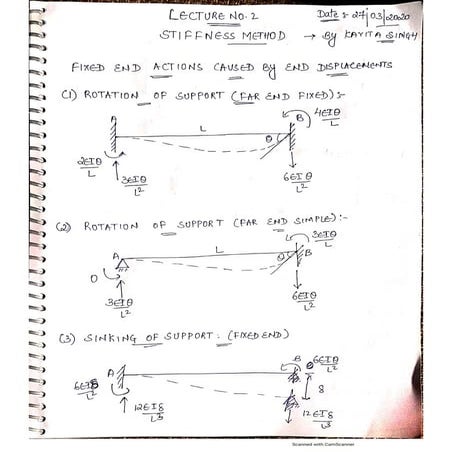 LECTURE NO. 2 Date :- 27/03/2020
STIFFNESS METHOD → By KAVITA SINGH
FIXED END ACTIONS CAUSED BY END DISPLACEMENTS
(1) ROTATION OF SUPPORT (FAR END FIXED):-
A L θ B 4EIθ/L
2EIθ/L 3EIθ/L² 6EIθ/L²
(2) ROTATION OF SUPPORT (FAR END SIMPLE):-
A L θ B 3EIθ/L
0 3EIθ/L² 6EIθ/L²
(3) SINKING OF SUPPORT: (FIXED END)
A B 6EIθ/L²
6EIδ/L² δ
12EIδ/L³ 12EIδ/L³
Scanned with CamScanner